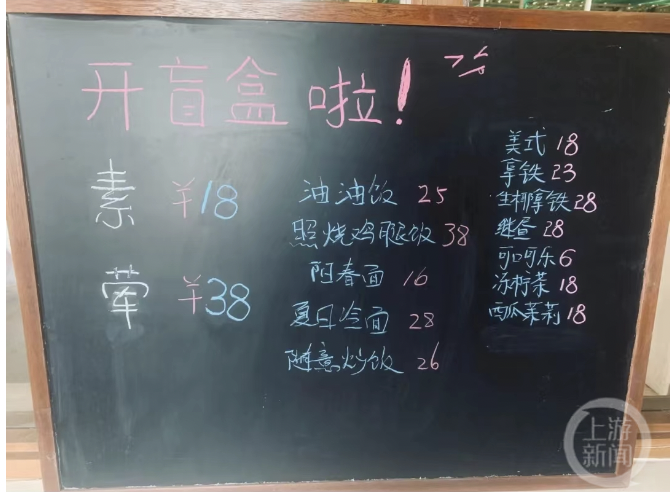 开盲盒啦!
素 ¥18
荤 ¥38
油油饭 25
照烧鸡腿饭 38
阳春面 16
夏日冷面 28
随意炒饭 26
美式 18
拿铁 23
生椰拿铁 28
28
可口可乐 6
冻柠茶 18
西瓜茉莉 18
上游新闻